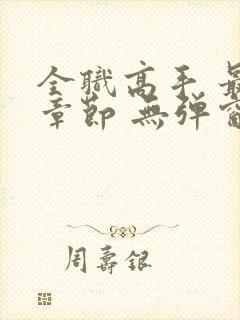 全職高手 最
章節 無弹窗
周壽銀